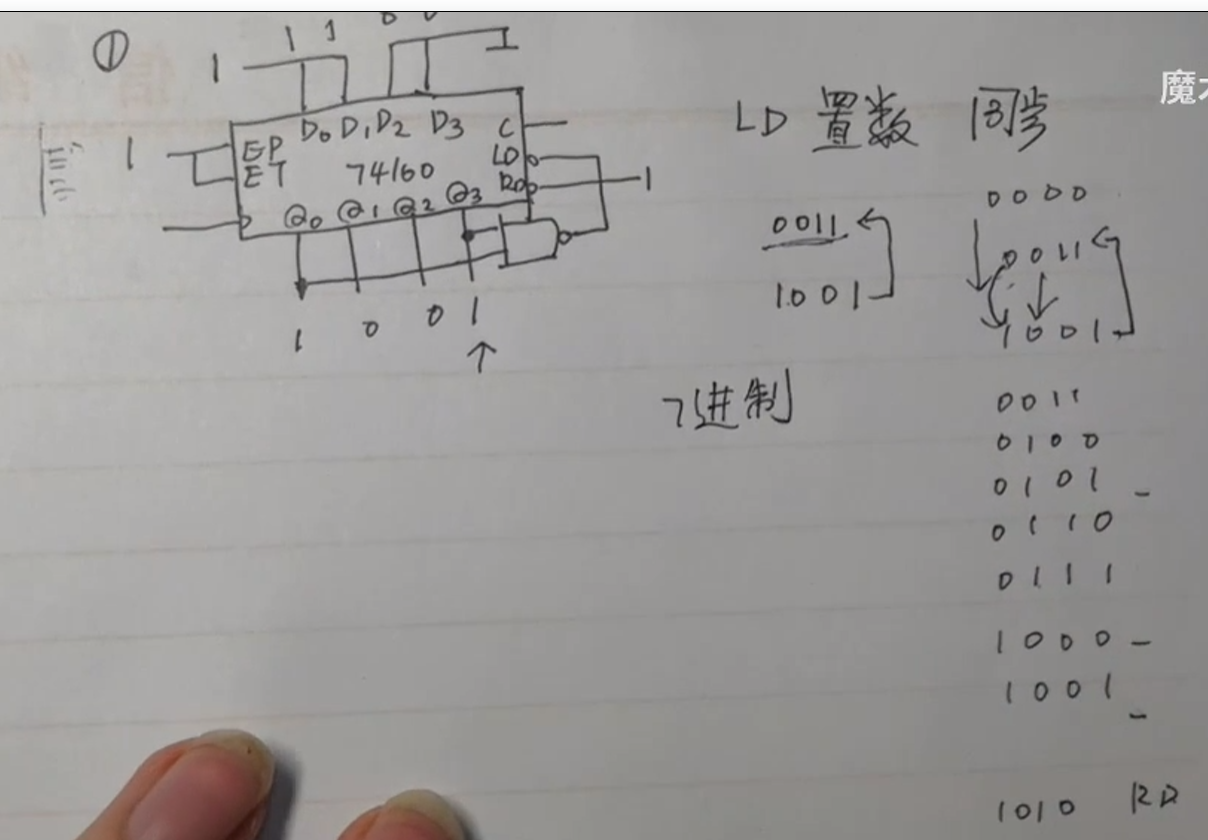 ①
1 1 0 0
1
1
D0 D1 D2 D3 C
EP
ET
74160
LD
RD
1
Q0 Q1 Q2 Q3
1 0 0 1
LD 置数 同步
0011
1001
0000
0011
1001
7进制
0011
0100
0101
0110
0111
1000
1001
1010 RD